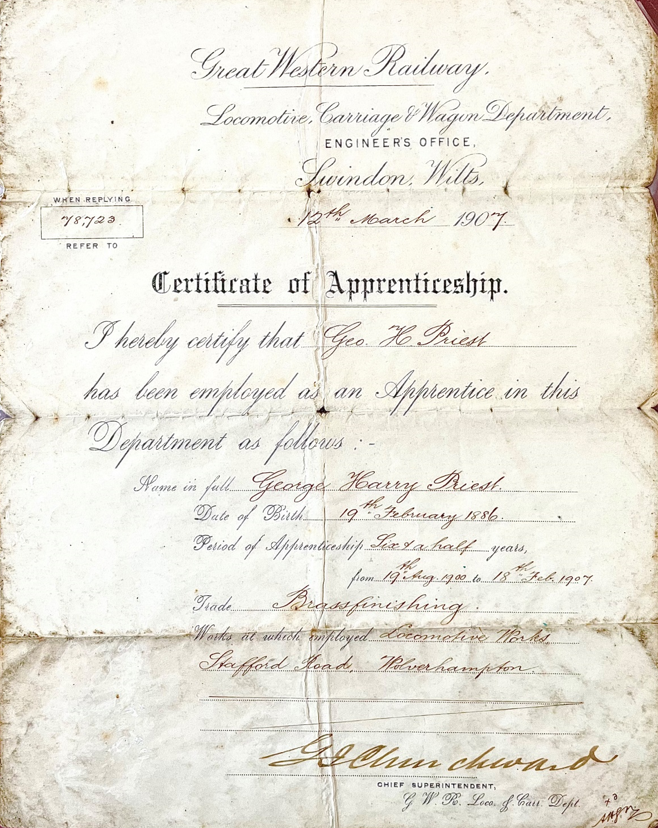 Great Western Railway.
Locomotive, Carriage & Wagon Department,
ENGINEER'S OFFICE,
Swindon, Wilts,
WHEN REPLYING
78,723
REFER TO
12th March 1907.
Certificate of Apprenticeship.
I hereby certify that Geo. H. Priest
has been employed as an Apprentice in this
Department as follows :-
Name in full George Harry Priest.
Date of Birth 19th February 1886.
Period of Apprenticeship Six & a half years,
from 19th Aug. 1900 to 18th Feb. 1907.
Trade Brassfinishing.
Works at which employed Locomotive Works,
Stafford Road, Wolverhampton.
G J Churchward
CHIEF SUPERINTENDENT,
G. W. R. Loco. & Carr. Dept.